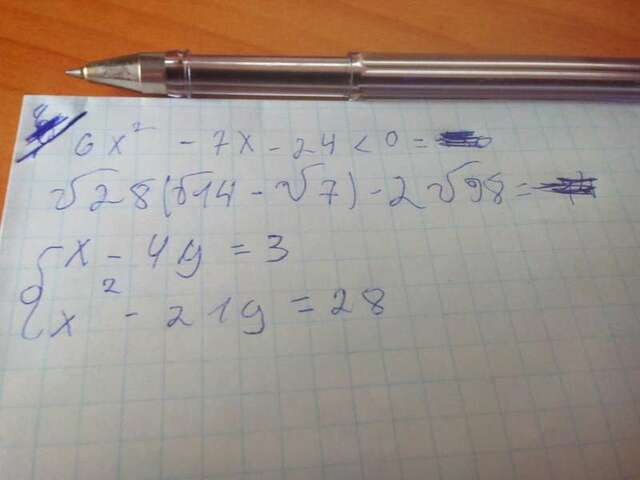 6x² - 7x - 24 < 0 =
√28(√14 - √7) - 2√98 =
{x - 4y = 3
x² - 21y = 28